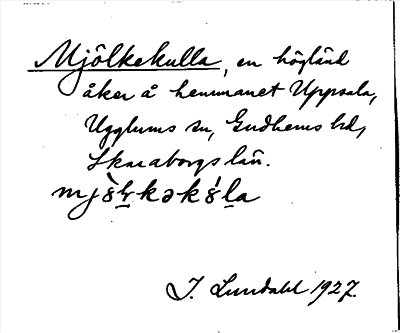 Mjölkekulla, en högländ
åker å hemmanet Uppsala,
Ugglums sn, Gudhems hd,
Skaraborgs län.
mjö̀lkəkö́la
I. Lundahl 1927.